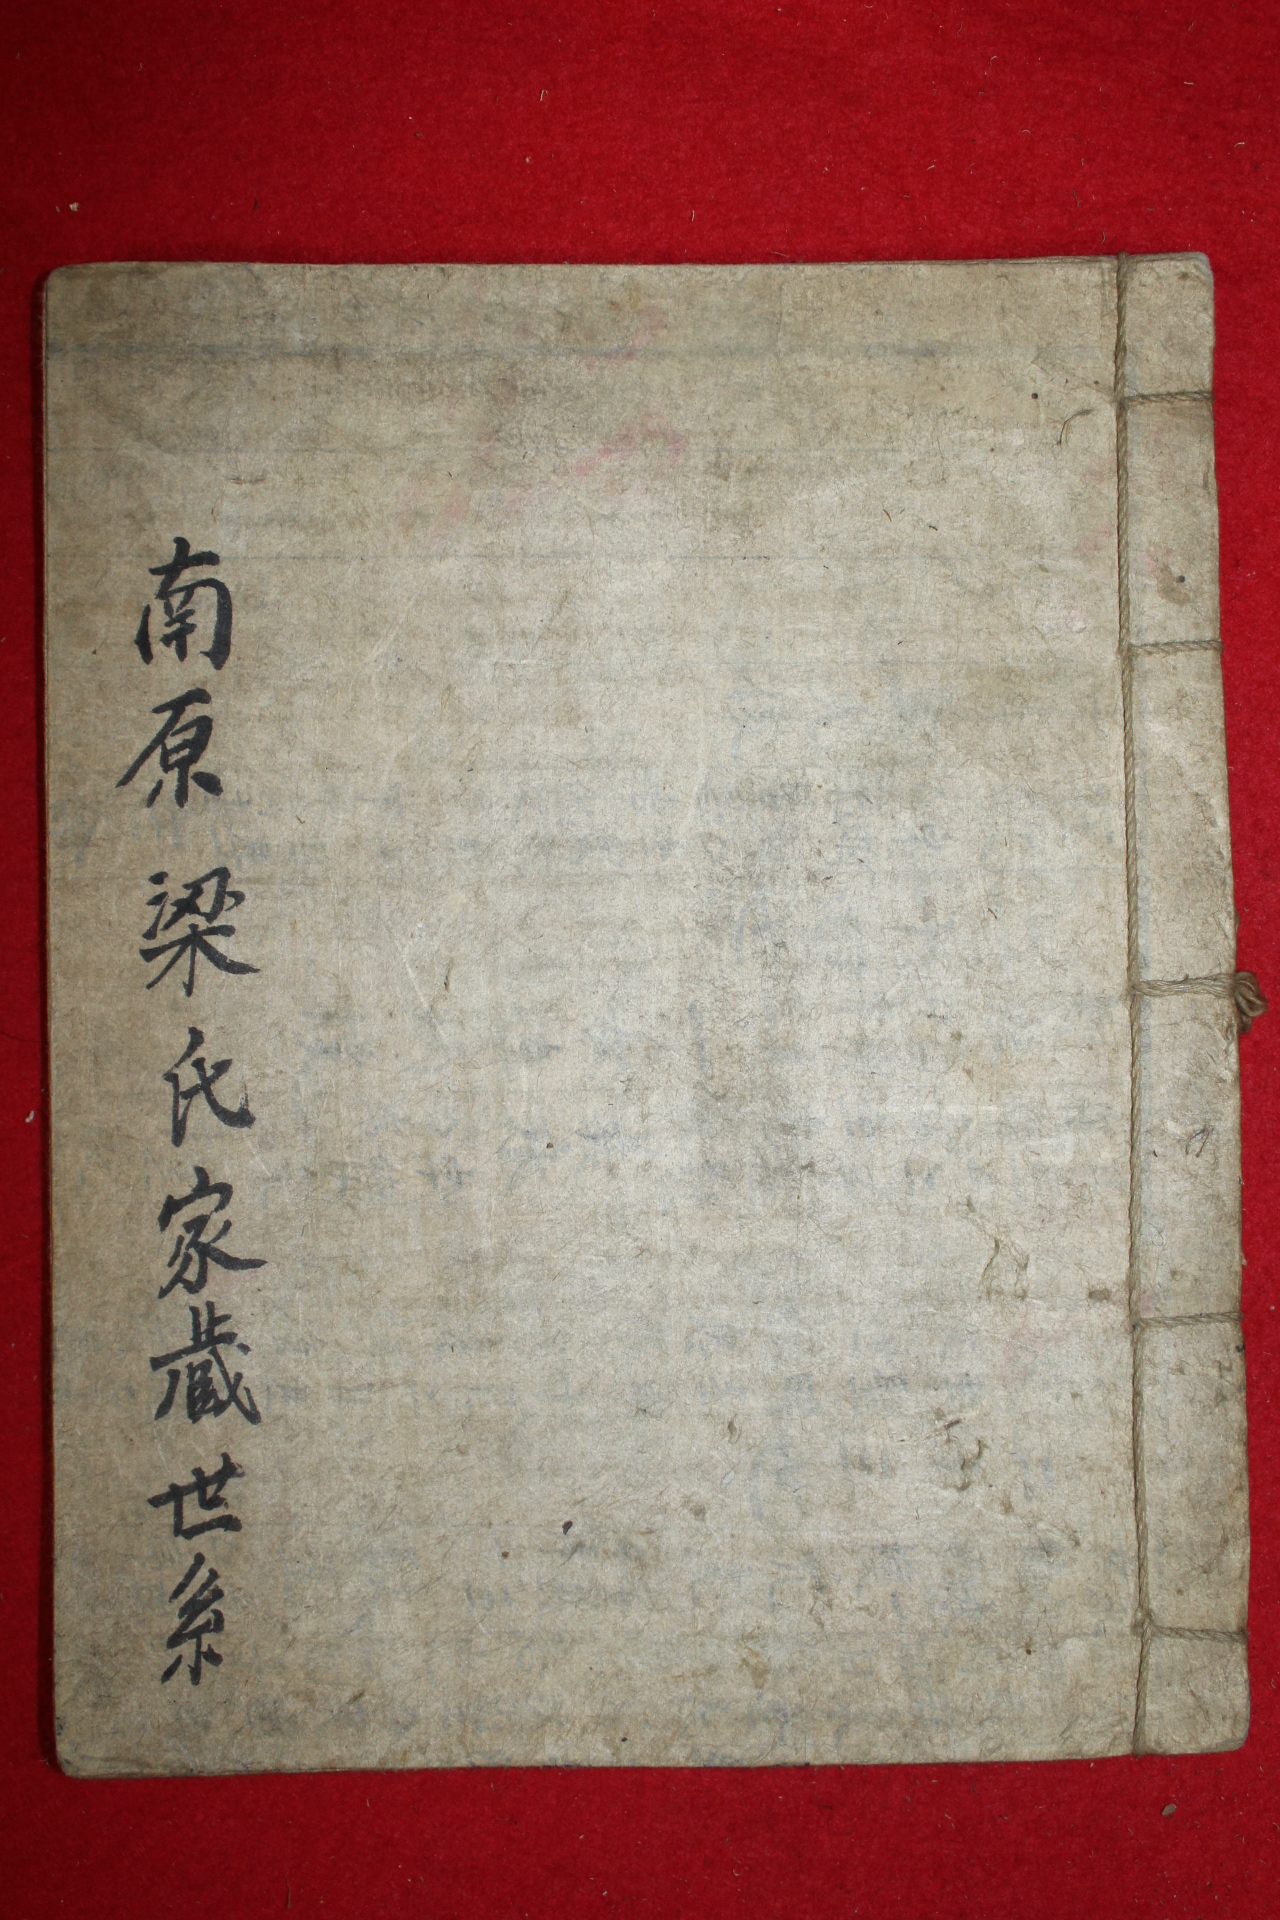 南原梁氏家藏世系